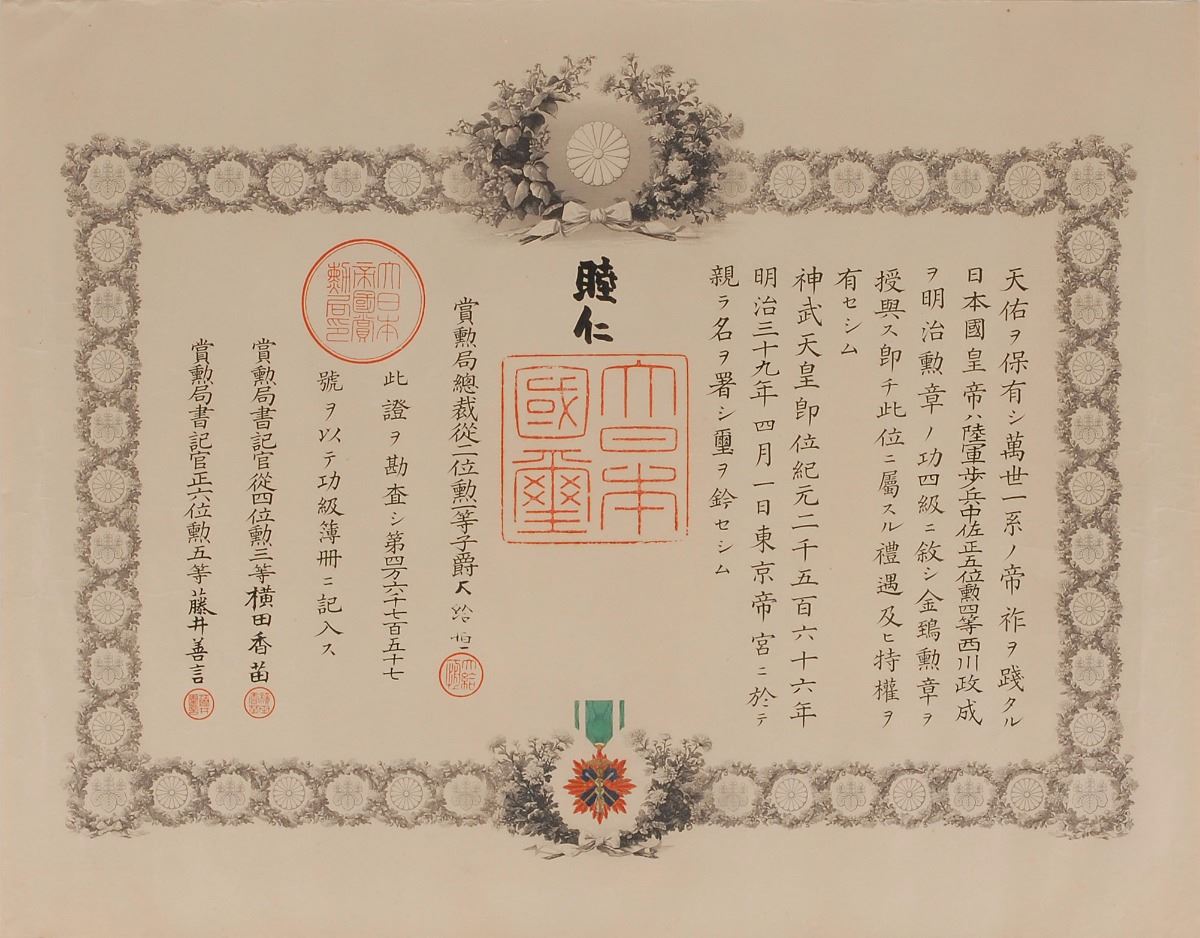 天佑ヲ保有シ萬世一系ノ帝祚ヲ踐タル
日本國皇帝ハ陸軍歩兵中佐正五位勲四等西川政成
ヲ明治勲章ノ功四級ニ敘シ金鵄勲章ヲ
授與ス卽チ此位ニ屬スル禮遇及ヒ特權ヲ
有セシム
神武天皇卽位紀元二千五百六十六年
明治三十九年四月一日東京帝宮ニ於テ
親ラ名ヲ署シ璽ヲ鈐セシム
睦仁
大日本
國璽
賞勲局總裁從二位勲一等子爵大給恒
大給
此證ヲ勘査シ第四万六千七百五十七
號ヲ以テ功級簿冊ニ記入ス
大日本
帝國賞
勲局印
賞勲局書記官從四位勲三等横田香苗
賞勲局書記官正六位勲五等藤井善言